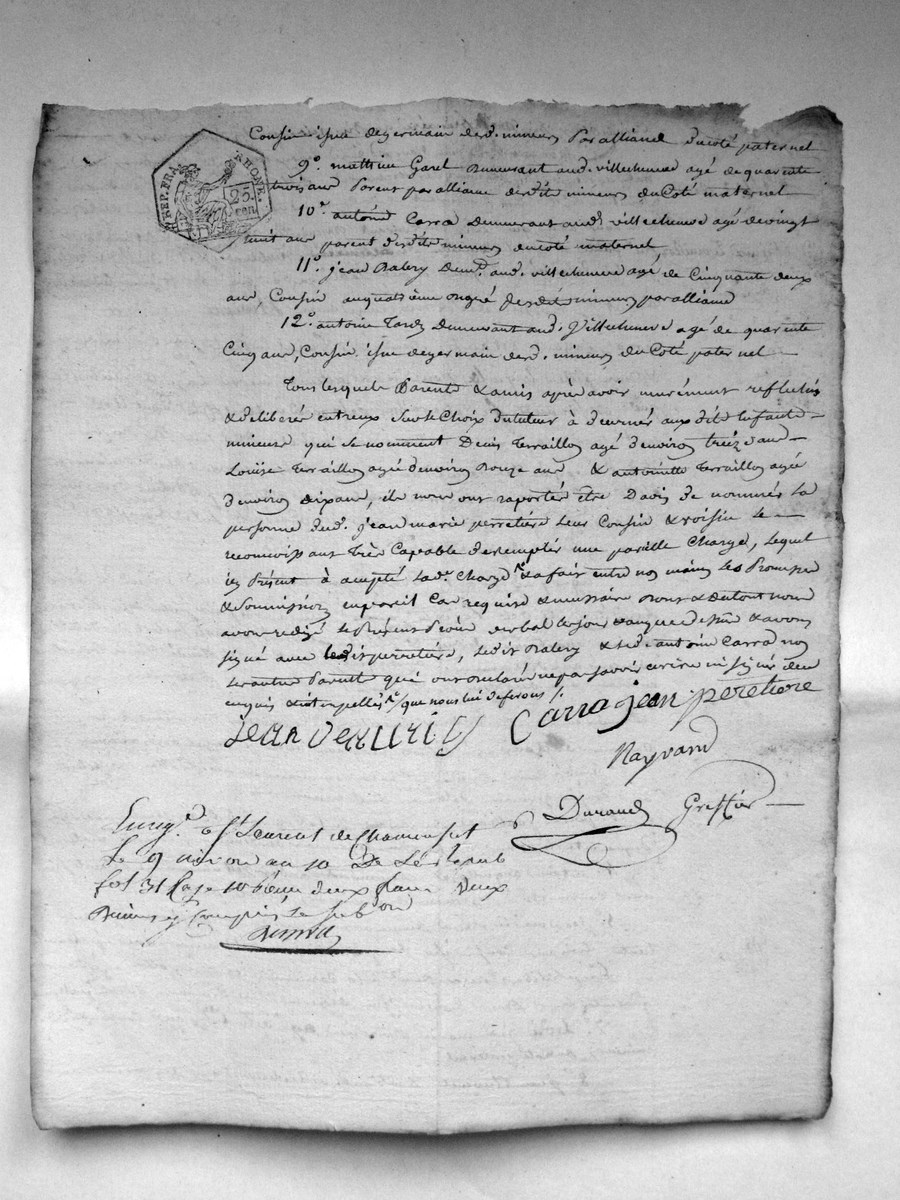 REP. FRA. RHONE.
25. cen
Cousin issue degermain desd. mineurs par alliance du coté paternel
9.° mathieu Garel demeurant aud. villechenève agé de quarente
trois ans parent par alliance desdits mineurs du coté maternel
10.° antoine Carra demeurant aud. villechenève agé devingt
huit ans parent desdits mineurs ducoté maternel
11.° jean Balery dem.t aud. villechenève agé de Cinquante deux
ans, Cousin auquatrième degré desdits mineurs par alliance
12.° antoine Tardy demeurant aud. villechenève agé de quarente
Cinq ans, Cousin issue degermain desd. mineurs du Coté paternel
Tous lesquels Parents & amis après avoir murément reflechis
& deliberé entreux sur le Choix du tuteur à donner aux dits Enfants
mineurs qui se nomment Denis Terraillon agé denviron treize ans
Louise Terraillon agée denviron onze ans & antoinette Terraillon agée
denviron dix ans, ils nous ont raporté être Davis de nommer la
personne dud. jean marie perretière leur Cousin & voisin le
reconnoissant très Capable de remplir une pareille Charge, lequel
ici présent à accepté lad.e Charge & a fait entre nos mains les Promesse
& Soumission en pareil Cas requise & nécessaire dont & dutout nous
avons redigé le présent procès verbal les jour & an que dessus & avons
signé avec ledit perretière, ledit Balery & led. antoine Carra non
les autres parents qui ont declaré ne pas savoir écrire ni signer de ce
enquis & interpellés
jean
Carra jean peretiere
Raynard
Durand Greffier
Enreg.é a St Laurent de Chamousset
le 9 nivose an 10 de
fol 31 deux francs deux
decimes y compris la sub.on